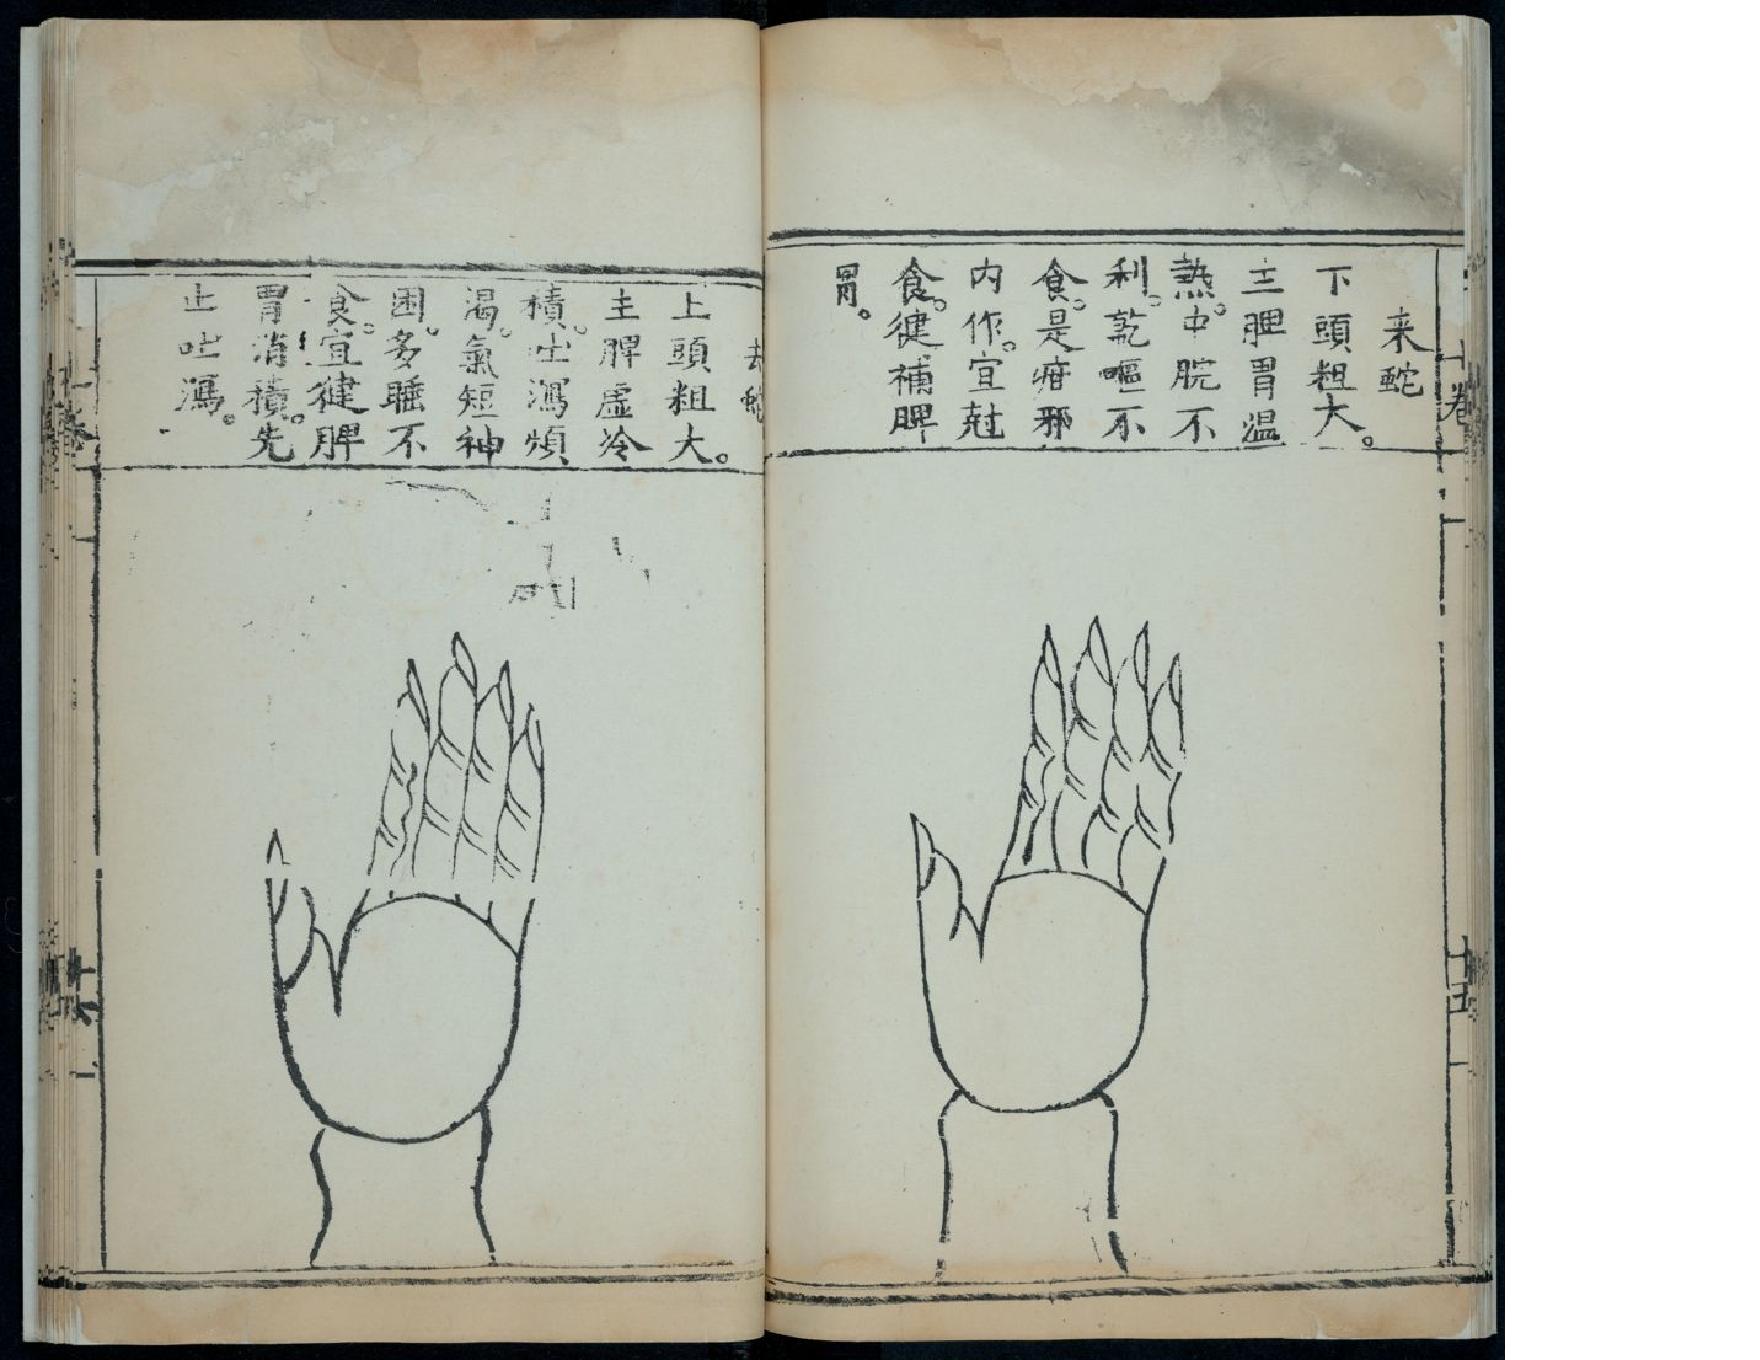 来蛇
下頭粗大。
主脾胃温
熱。中脘不
利。乾嘔不
食。是疳邪
内作。宜尅
食。健補脾
胃。
去蛇
上頭粗大。
主脾虛冷
積。吐瀉煩
渴。氣短神
困。多睡不
食。宜健脾
胃消積。先
止吐瀉。